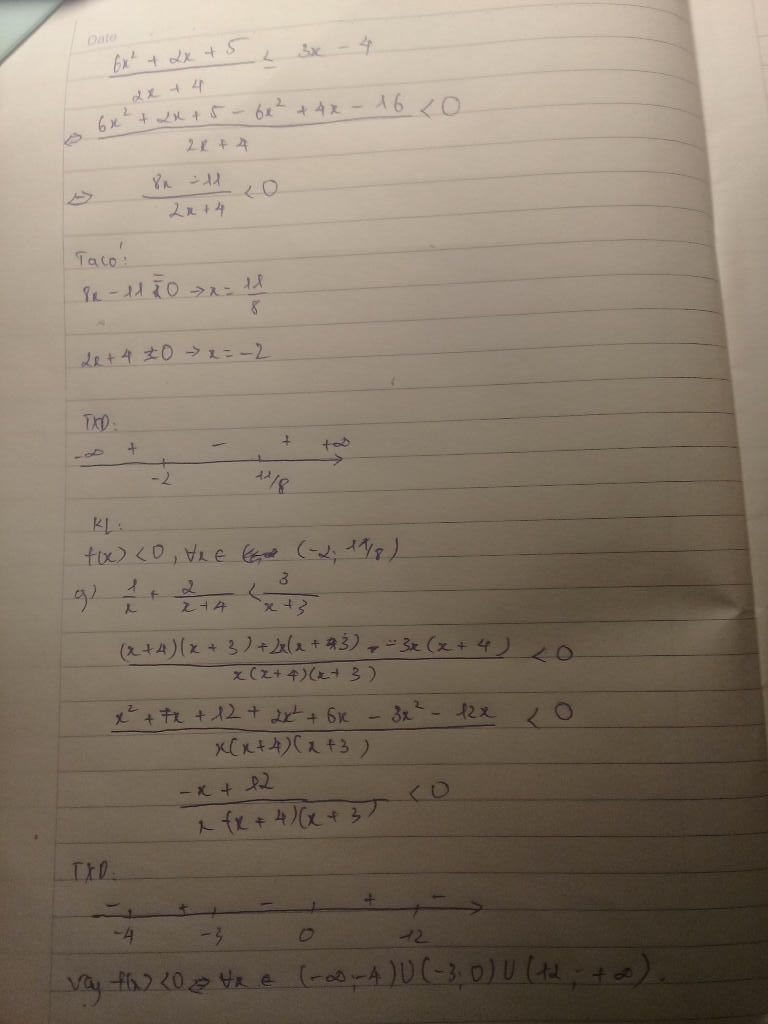 Date
6x² + 2x + 5 / 2x + 4 ≤ 3x - 4
⇔ 6x² + 2x + 5 - 6x² + 4x - 16 / 2x + 4 < 0
⇔ 8x - 11 / 2x + 4 < 0
Ta có:
8x - 11 = 0 → x = 11/8
2x + 4 = 0 → x = -2
TXD:
-∞ + - + +∞
-2 11/8
KL:
f(x) < 0, ∀x ∈ (-2; 11/8)
g) 1/x + 2/x+4 < 3/x+3
(x+4)(x+3) + 2x(x+3) - 3x(x+4) / x(x+4)(x+3) < 0
x² + 7x + 12 + 2x² + 6x - 3x² - 12x / x(x+4)(x+3) < 0
-x + 12 / x(x+4)(x+3) < 0
TXD:
- + - + -
-4 -3 0 12
Vậy f(x) < 0 ⇔ ∀x ∈ (-∞; -4) ∪ (-3; 0) ∪ (12; +∞).